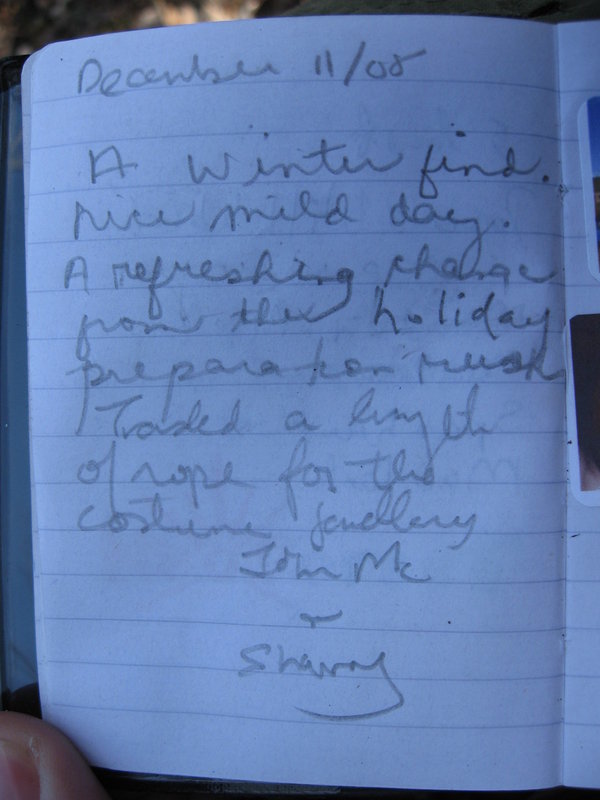 December 11/08
A Winter find.
Nice mild day.
A refreshing change
from the holiday
preparation rush
Traded a length
of rope for the
costume jewellery
John Mc
+